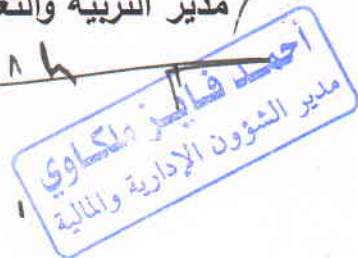 /مدير التربية والتع
أحمد فايز ملكاوي
مدير الشؤون الإدارية والمالية